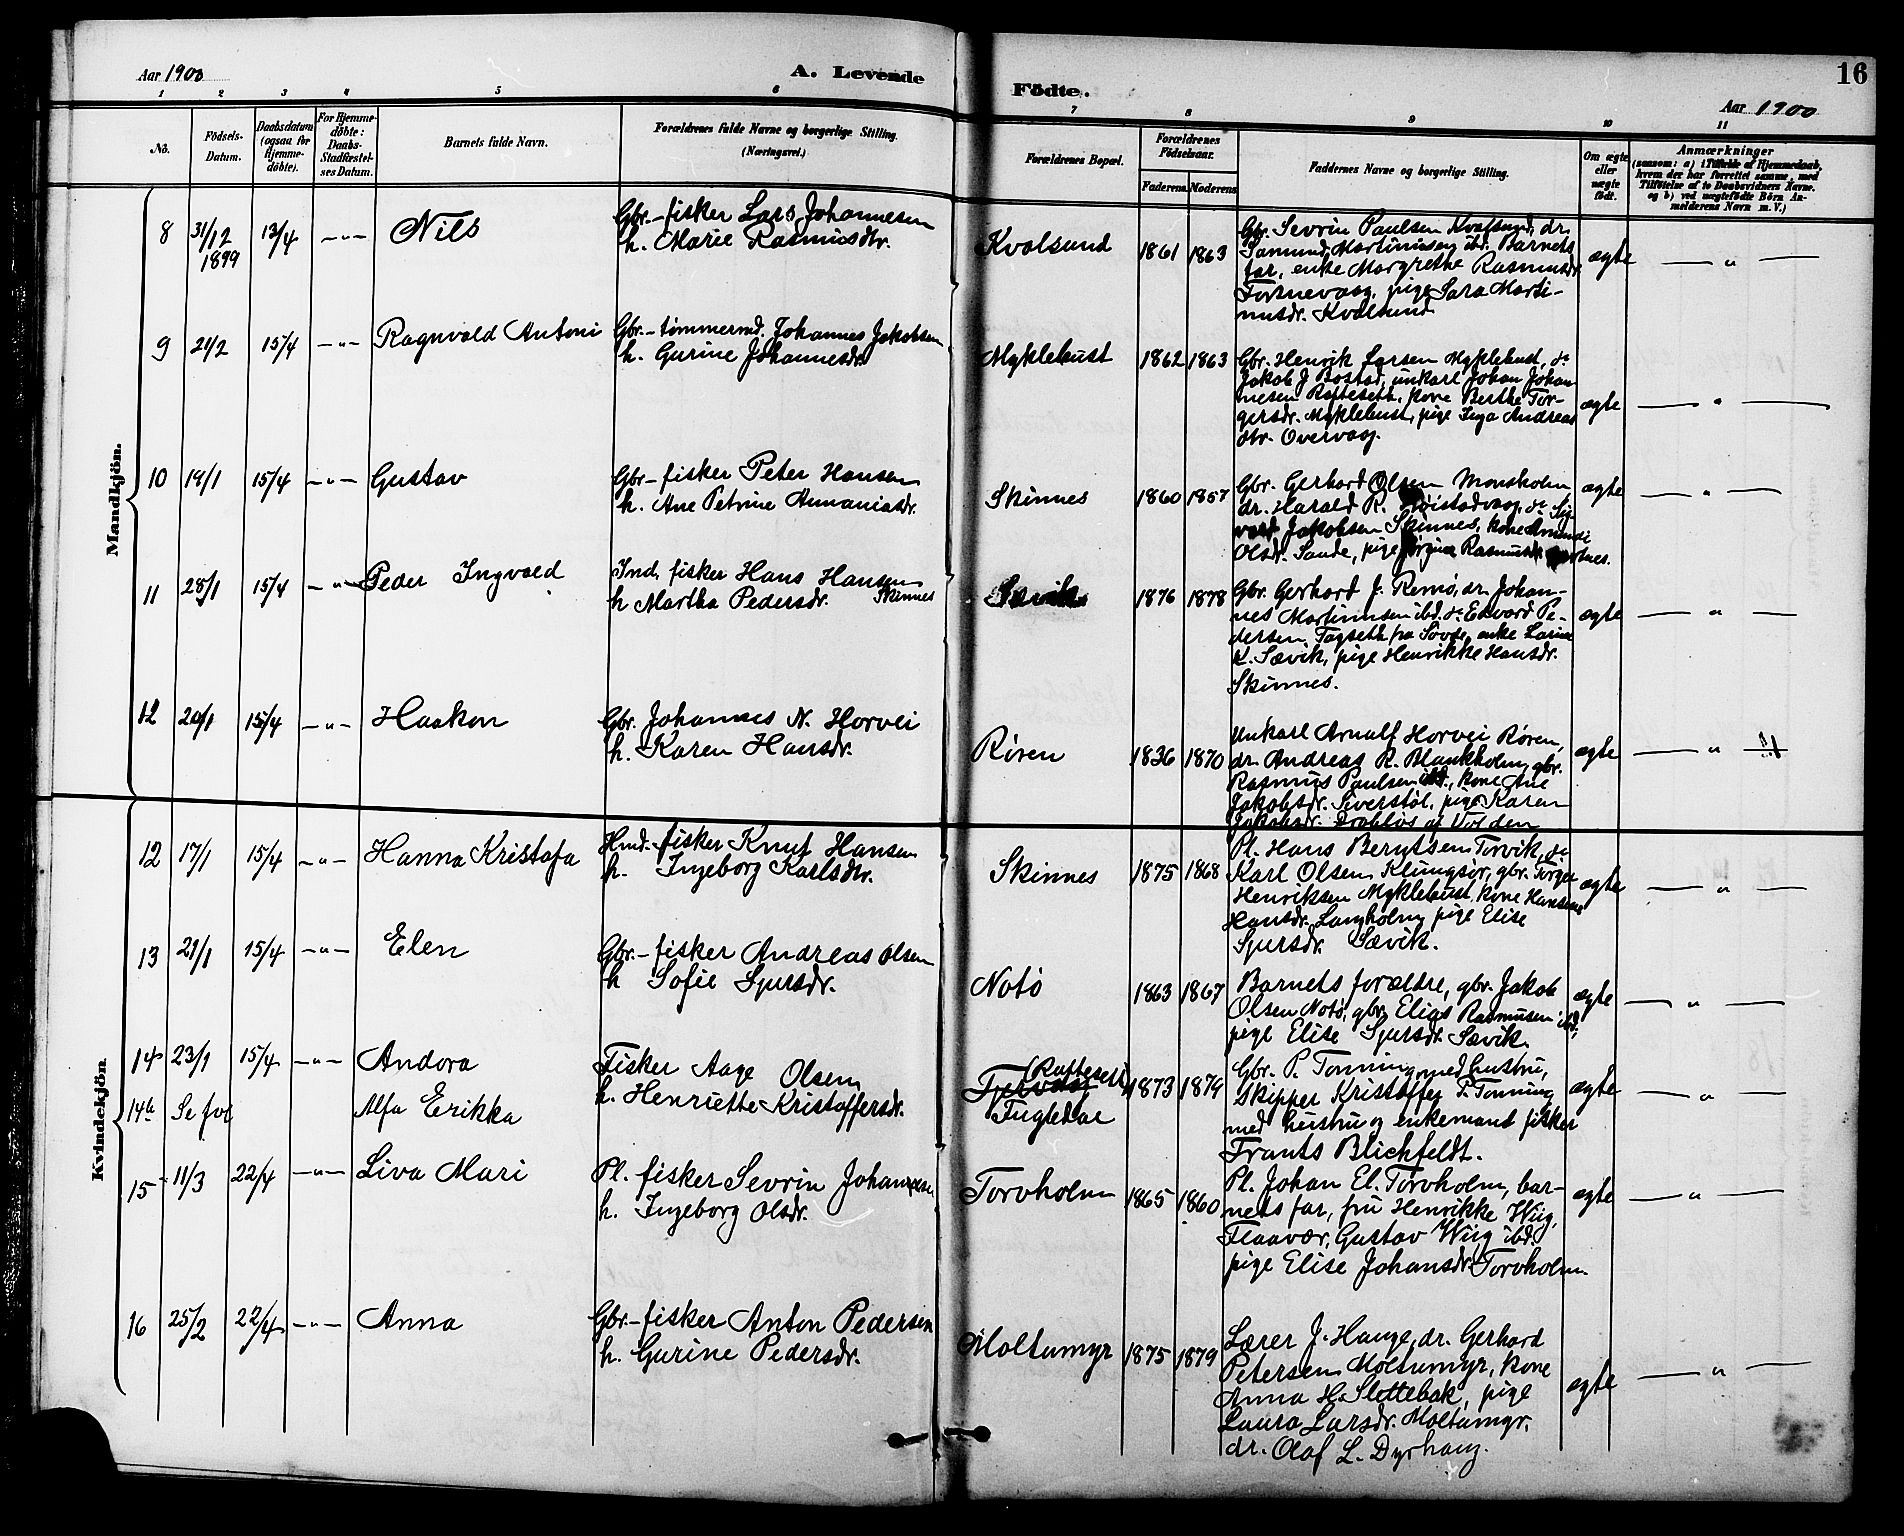 Aar 1900
A. Levende
Födte.
16
Aar 1900
1 2 3 4 5 6 7 8 9 10 11
No.
Födsels-Datum.
Daabsdatum (ogsaa for Hjemme-döbte).
For Hjemme-döbte: Daabs-Stadfæstel-ses Datum.
Barnets fulde Navn.
Forældrenes fulde Navne og borgerlige Stilling. (Næringsvei.)
Forældrenes Bopæl.
Forældrenes Födselsaar.
Faderens. Moderens.
Faddernes Navne og borgerlige Stilling.
Om ægte eller uægte födt.
Anmærkninger
(saasom: a) i Tilfælde af Hjemmedaab, hvem der har forrettet samme, med Tilföielse af to Daabsvidners Navne. og b) ved uægtefödte Börn An-melderens Navn m. V.)
Mandkjön.
8 31/12 1899 13/4 -"- Nils
Gbr.-fisker Lars Johannesen
h. Marie Rasmusdtr.
Kvalsund 1861 1863
Gbr. Sevrin Paulsen Kvalsund, dr.
Samund Martinusen ibd. Barnets
far, enke Margrethe Rasmusdr.
pige Sara Marti-
nusdr. Kvalsund
ægte — " —
9 21/2 15/4 -"- Ragnvald Antoni
Gbr.-tømmermd. Johannes Jakobsen
h. Gurine Johannesdr.
Myklebust 1862 1863
Gbr. Henrik Larsen Myklebust, do
Jakob J. Bostad, unkarl Johan Johan-
nesen Rafteseth, kone Berthe Tor-
gersdr. Myklebust, pige Inga Andreas
dtr. Overvaag.
ægte — " —
10 19/1 15/4 -"- Gustav
Gbr-fisker Peter Hansen
h. Ane Petrine Annaniasdr.
Skinnes 1860 1857
Gbr. Gerhard Olsen Monsholm
dr. Harald R. do Sig-
vart Jakobsen Skinnes, kone
Olsdr. Sande, pige Jørgine Rasmusdr.
ægte — " —
11 28/1 15/4 -"- Peder Ingvald
Ind. fisker Hans Hansen
h Martha Pedersdr. Skinnes
Sævik 1876 1878
Gbr. Gerhard J. Remø, dr. Johan-
nes Martinusen ibd. do Edvard Pe-
dersen Tagseth fra Søvde, enke Larine
K. Sævik, pige Henrikke Hansdr.
Skinnes.
ægte — " —
12 20/1 15/4 -"- Haakon
Gbr. Johannes N. Horvei
h. Karen Hansdr.
Røren 1836 1870
Unkarl Arnulf Horvei Røren,
dr. Andreas R. Blankholm, gbr.
Rasmus Paulsen ibd., kone Ane
Jakobsdr. Siverstøl, pige Karen
Jakobsdr. Drabløs af Volden
ægte — " —
Kvindekjön
12 17/1 15/4 -"- Hanna Kristofa
Hmd.-fisker Knut Hansen
h. Ingeborg Karlsdtr.
Skinnes 1875 1868
Pl. Hans Berntsen Torvik, do
Karl Olsen Klungsør, gbr. Torger
Henriksen Myklebust, kone Hansine
Hansdr. Langholm, pige Elise
Sjursdr. Sævik.
ægte — " —
13 21/1 15/4 -"- Elen
Gbr.-fisker Andreas Olsen
h Sofie Sjursdr.
Notø 1863 1867
Barnets forældre, gbr. Jakob
Olsen Notø, gbr. Elias Rasmusen ibd.
pige Elise Sjursdr. Sævik.
ægte — " —
14 23/1 15/4 -"- Andora
14a Se fol Alfa Erikka
Fisker Aage Olsen
h. Henriette Kristoffersdr.
(Rafteseth)
1873 1879
Gbr. P. Tonning med hustru,
Skipper Kristoffer F. Tonning
med hustru og enkemand fisker
Frants Blichfeldt.
ægte — " —
15 11/3 22/4 -"- Liva Mari
Pl. fisker Sevrin Johannesen
h. Ingeborg Olsdr.
Torvholm 1865 1860
Pl. Johan El. Torvholm, bar-
nets far, fru Henrikke Wiig,
Flaavær, Gustav Wiig ibd.
pige Elise Johansdr. Torvholm
ægte — " —
16 25/2 22/4 -"- Anna
Gbr-fisker Anton Pedersen
h. Gurine Pedersdr.
Moltumyr 1875 1879
Lærer J. Hauge, dr. Gerhard
Petersen Moltumyr, kone
Anna H. Slottebak, pige
Laura Larsdr. Moltumyr.
dr. Olaf L. Dyrhaug.
ægte — " —